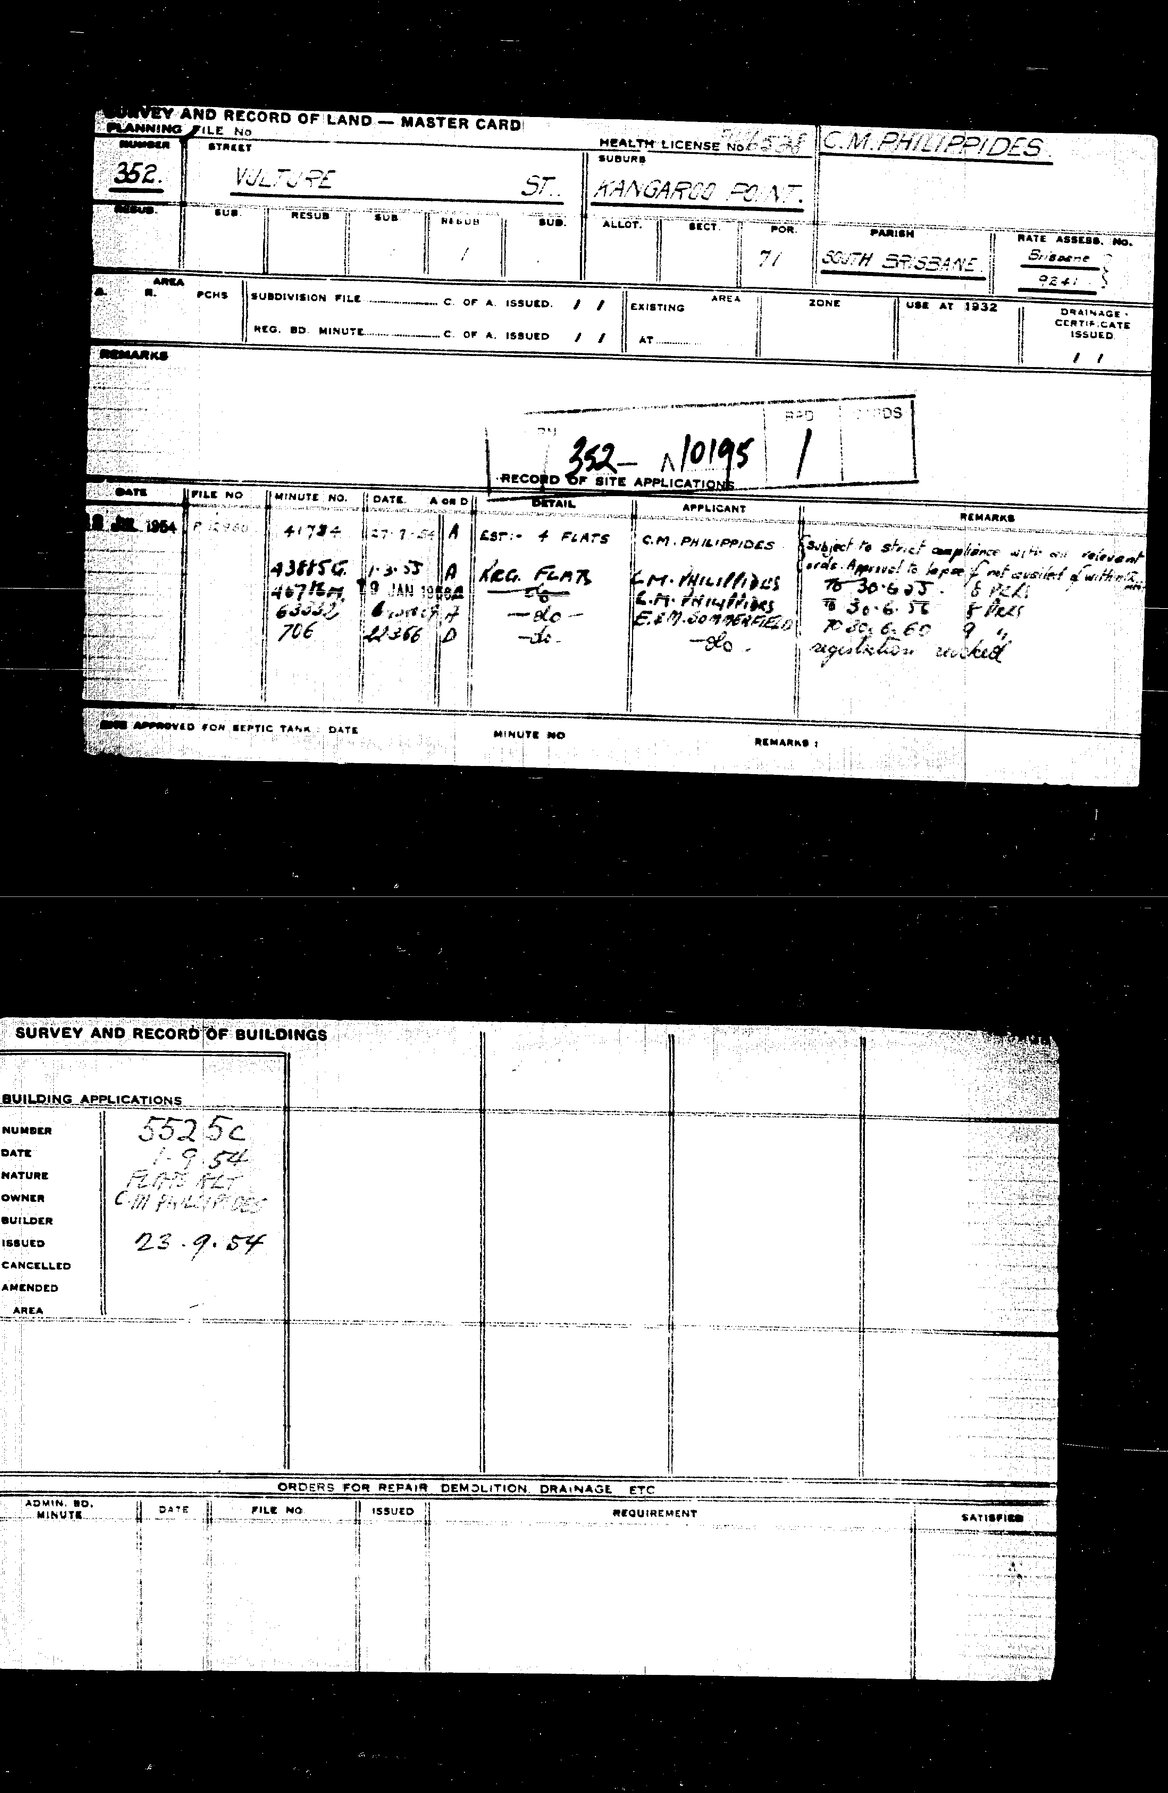 SURVEY AND RECORD OF LAND — MASTER CARD
PLANNING FILE No
HEALTH LICENSE No.
C.M. PHILIPPIDES.
NUMBER STREET SUBURB
352. VULTURE ST. KANGAROO POINT.
RESUB. SUB. RESUB SUB RESUB SUB. ALLOT. SECT. POR. PARISH RATE ASSESS. No.
1 71 SOUTH BRISBANE. Brisbane
9241
AREA
A. R. PCHS SUBDIVISION FILE C. OF A. ISSUED. / / EXISTING AREA ZONE USE AT 1932 DRAINAGE
CERTIFICATE
ISSUED
REG. BD. MINUTE C. OF A. ISSUED / / AT / /
REMARKS
352— 10195 1
RECORD OF SITE APPLICATIONS
DATE FILE NO MINUTE NO. DATE. A OR D DETAIL APPLICANT REMARKS
JUL 1954 41734 27-7-54 A EST:- 4 FLATS C.M. PHILIPPIDES Subject to strict compliance with all relevant
ords. Approval to lapse if not availed of within
43885G. 1-3-55 A REG. FLATS C.M. PHILIPPIDES To 30.6.55. 8 PERS
9 JAN 1956 A do C.M. PHILIPPIDES To 30.6.56 8 PERS
63332 A —do— E.&M. SOMMERFIELD To 30.6.60 9 "
706 22366 D —do. —do. registration revoked
SITE APPROVED FOR SEPTIC TANK: DATE MINUTE NO REMARKS:
SURVEY AND RECORD OF BUILDINGS
BUILDING APPLICATIONS
NUMBER 5525C
DATE 1.9.54
NATURE FLATS ALT
OWNER C.M PHILIPPIDES
BUILDER
ISSUED 23.9.54
CANCELLED
AMENDED
AREA
ORDERS FOR REPAIR DEMOLITION, DRAINAGE ETC
ADMIN. BD.
MINUTE DATE FILE NO ISSUED REQUIREMENT SATISFIED